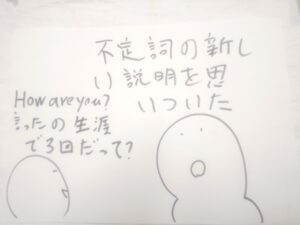 不定詞の新し
い説明を思
いついた
How are you?
言ったの生涯
で3回だって?